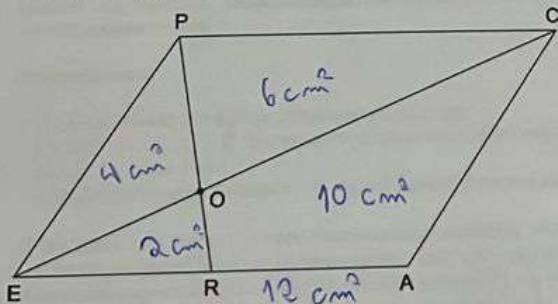 P
C
6 cm²
4 cm²
O
10 cm²
2 cm²
E
R
12 cm²
A